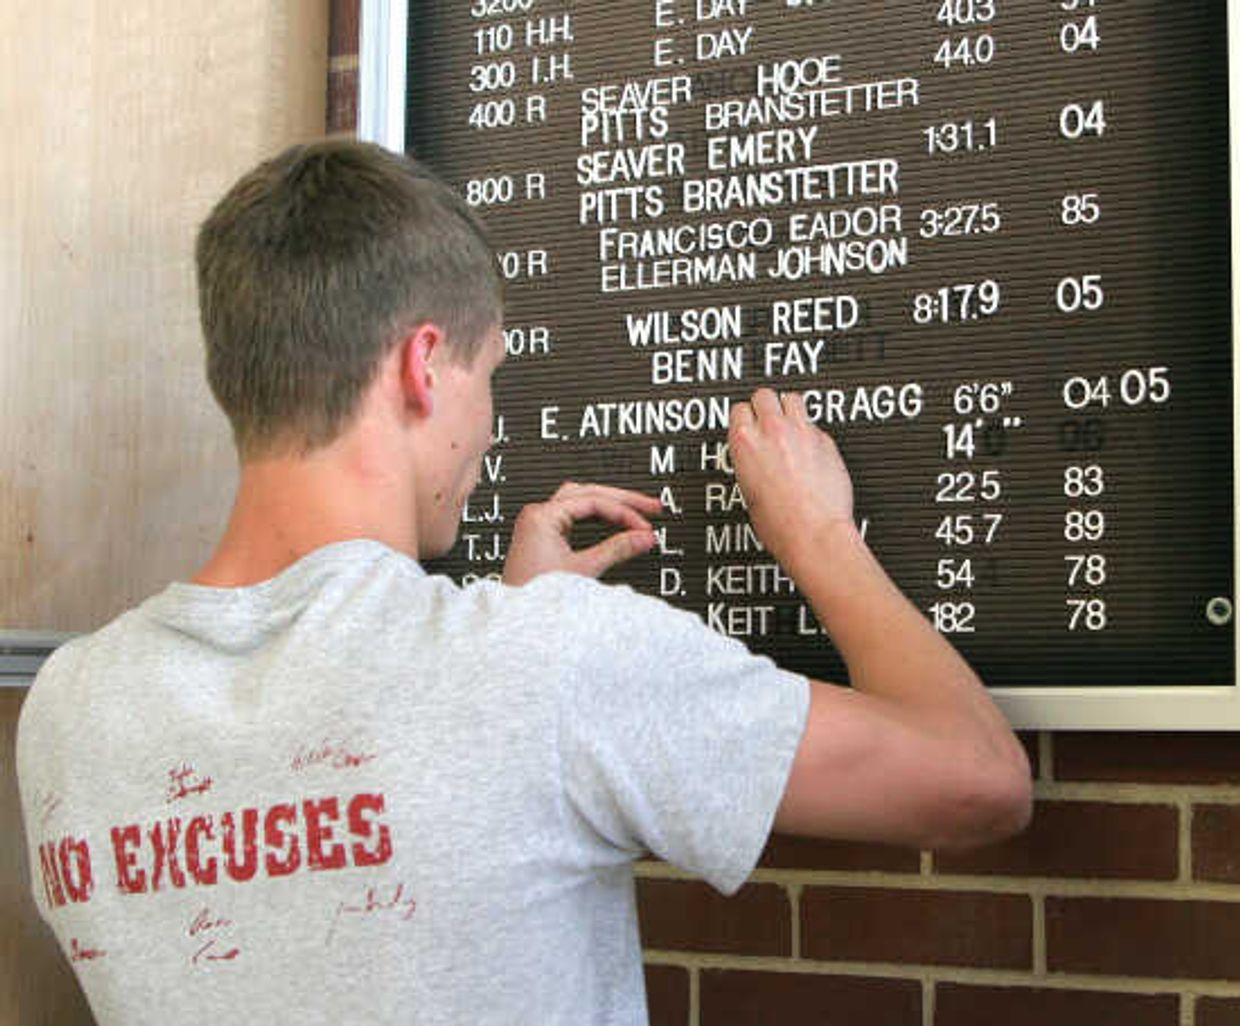 3200
E. DAY 40.3
110 H.H. E. DAY 44.0 04
300 I.H.
400 R SEAVER HOOE
PITTS BRANSTETTER
SEAVER EMERY 1:31.1 04
800 R PITTS BRANSTETTER
FRANCISCO EADOR 3:27.5 85
0 R ELLERMAN JOHNSON
WILSON REED 8:17.9 05
00 R BENN FAY
J. E. ATKINSON GRAGG 6'6" 04 05
.V. M HO 14'
L.J. A. RA 22 5 83
T.J. L. MIN W 45 7 89
D. KEITH 54 78
KEIT L. 182 78
NO EXCUSES